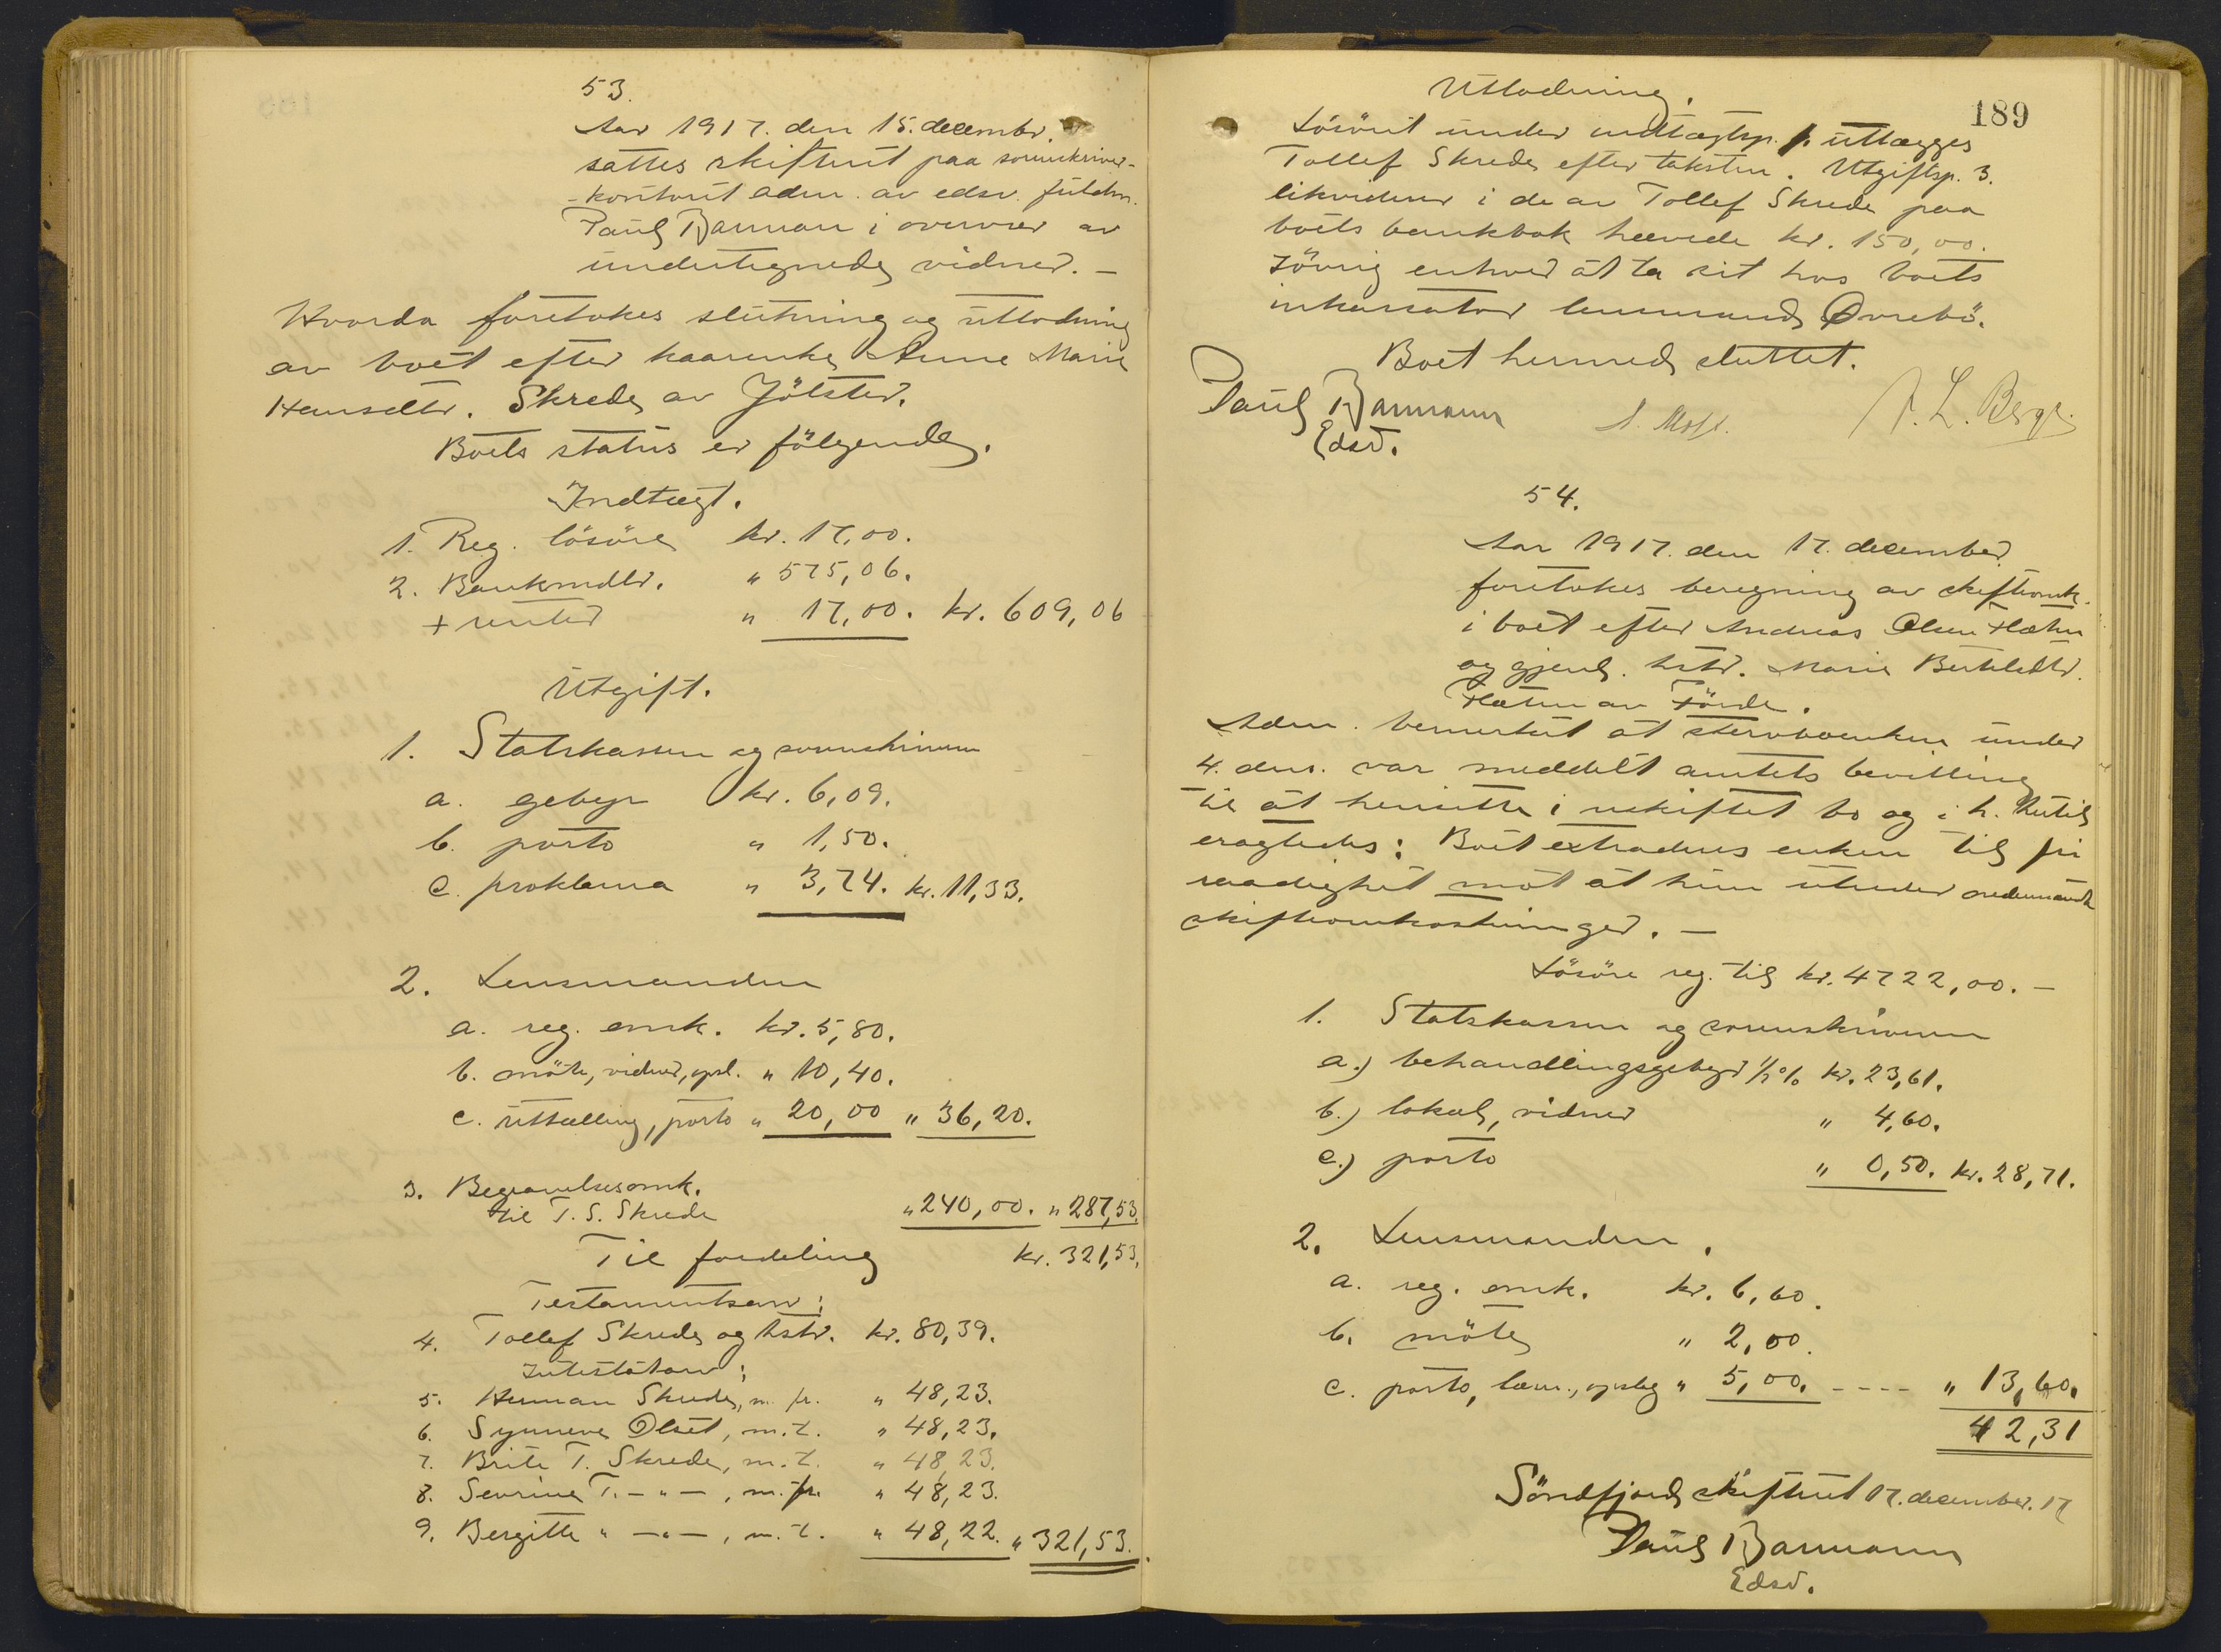 53.
Aar 1917. den 15. decembr.
sattes skifteret paa sorenskriver-
-kontoret adm. av edsv. fuldm.
Paul Barmann i overvær av
undertegnede vidner. —
Hvorda foretokes slutning og utlodning
av boet efter kaarenke Anne Marie
Hansdtr. Skrede av Jölster.
Boets status er fölgende.
Indtægt.
1. Reg. lösöre kr. 17,00.
2. Bankmdlr. " 575,06.
+ renter " 17,00. kr. 609,06
Utgift.
1. Statskassen og sorenskriveren
a. gebyr kr. 6,09.
b. porto " 1,50.
c. proklama " 3,74. kr. 11,33.
2. Lensmanden
a. reg. omk. kr. 5,80.
b. möte, vidner, opsl. " 10,40.
c. uttælling, porto " 20,00 " 36,20.
3. Begravelsesomk.
til T. S. Skrede " 240,00. " 287,53.
Til fordeling kr. 321,53.
Testamentsarv:
4. Tollef Skrede og hstr. kr. 80,39.
Intestatarv:
5. Herman Skrede, m. fr. " 48,23.
6. Synneve Olset, m. t. " 48,23.
7. Brite T. Skrede, m. t. " 48,23.
8. Sevrine T. — " — , m. fr. " 48,23.
9. Bergitte " — " — , m. t. " 48,22. " 321,53.
189
Utlodning.
Lösöret under indtægtsp. 1. utlægges
Tollef Skrede efter taksten. Utgiftsp. 3.
likvideres i de av Tollef Skrede paa
boets bankbok hævede kr. 150,00.
Iövrig enhver at ta sit hos boets
inkassator lensmand Övrebö.
Boet hermed sluttet.
Paul Barmann
Edsv.
A. L. Berge.
54.
Aar 1917. den 17. december
foretokes beregning av skifteomk.
i boet efter Andreas Olsen Hætn
og gjenl. hstr. Marie Bertelsdtr.
Hætn av Förde.
Adm. bemerket at stervboenken under
4. dns. var meddelt amtets bevilling
til at hensitte i uskiftet bo og i h. hertil
eragtedes: Boet extraderes enken til fri
raadighet mot at hun utreder nedennævnte
skifteomkostninger. —
Lösöre reg. til kr. 4722,00. —
1. Statskassen og sorenskriveren
a.) behandlingsgebyr 1/2 % kr. 23,61.
b.) lokale, vidner " 4,60.
c.) porto " 0,50. kr. 28,71.
2. Lensmanden.
a. reg. omk. kr. 6,60.
b. möte " 2,00.
c. porto, opslag " 5,00. - - - - " 13,60.
42,31
Söndfjord skifteret 17. december. 17
Paul Barmann
Edsv.